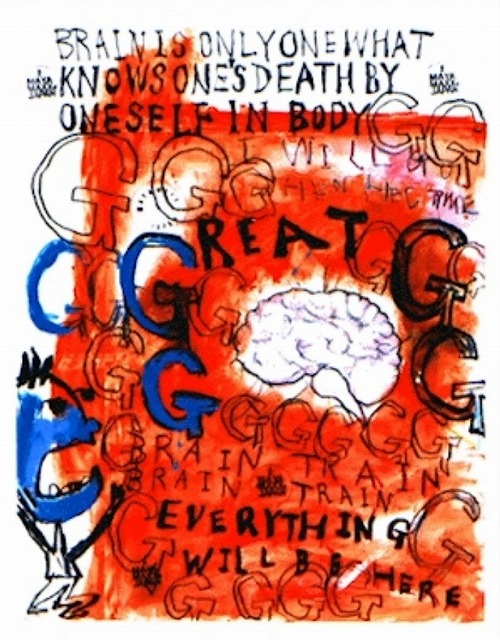 BRAIN IS ONLY ONE WHAT
KNOWS ONE'S DEATH BY
ONESELF IN BODY
G G
I WILL
G G G
TIME
GREAT
G G G
G G G
G G G G G G
BRAIN TRAIN
BRAIN TRAIN
EVERYTHING
G G
WILL BE HERE
G G G